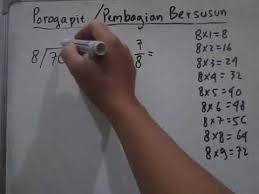 Porogapit / Pembagian Bersusun
8 / 70
7/8 =
8x1 = 8
8x2 = 16
8x3 = 24
8x4 = 32
8x5 = 40
8x6 = 48
8x7 = 56
8x8 = 64
8x9 = 72